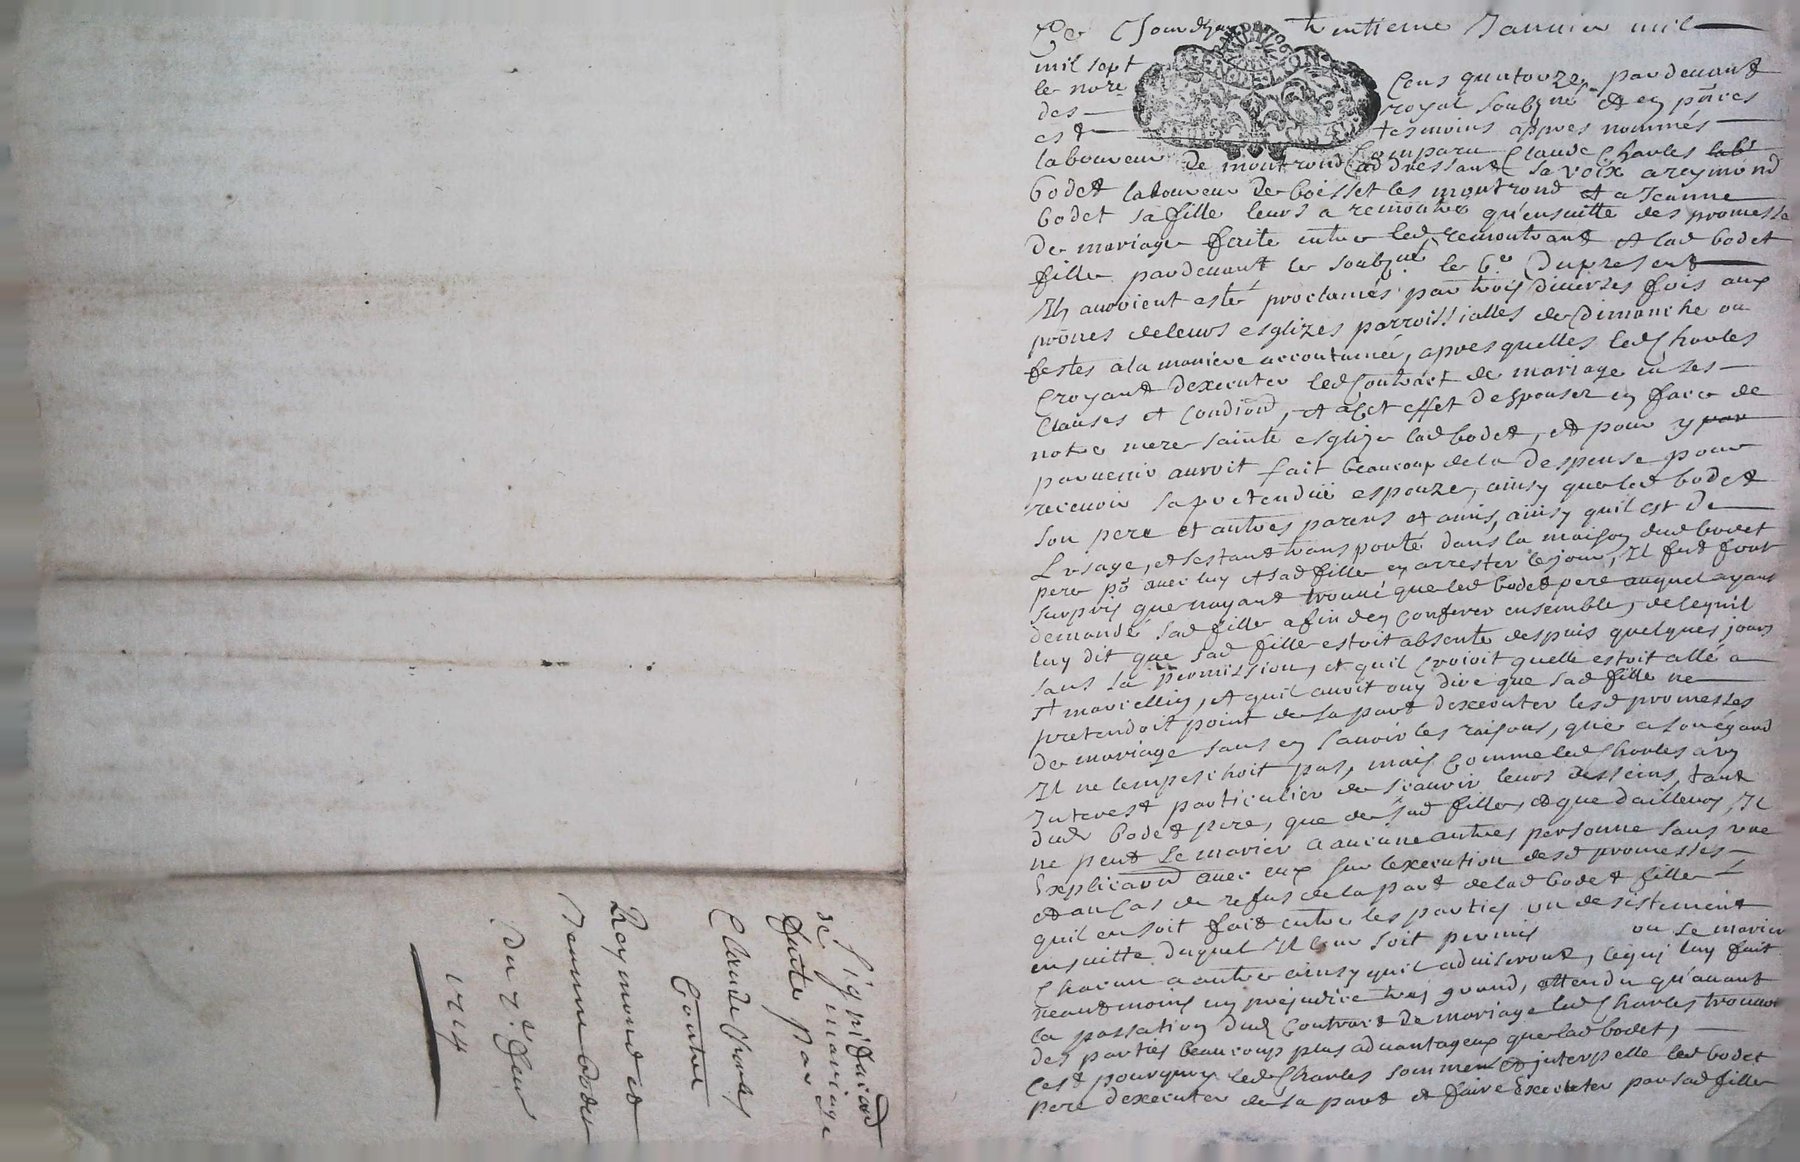 Ce Jourdhuy trentieme Janvier mil
mil sept Cens quatorze, pardevant
le nore royal soubzné et en pñces
des tesmoins appres nommés
est Comparu Claude Charles labr
laboureur de montrond, addressant sa voix a reymond
bodet laboureur de boisset les montrond et a Jeanne
bodet sa fille leurs a remontré qu'ensuitte des promesse
de mariage faite entre led remontrant et lad bodet
fille pardevant le soubzné le 6e du present
Ils auroient esté proclamés par trois diverses fois aux
prônes de leurs esglizes parroissialles de Dimanche ou
festes a la maniere accoutumée, apres quelles led Charles
Croyant dexecuter led Contract de mariage en ses
Clauses et Condiõns, et a Cet effet despouser en face de
notre mere sainte esglize lad bodet, et pour y par
parvenir auroit fait beaucoup de la despense pour
recevoir sa pretendüe espouze, ainsy que led bodet
son pere et autres parens et amis, ainsy quil est de
Lusage, et sestant transporté dans la maison dud bodet
pere po avec luy et sad fille en arrester le jour, Il fut fort
surpris que nayant trouvé que led bodet pere auquel ayant
demandé sad fille afin den Conferer ensemble, de lequil
luy dit que sad fille estoit absente despuis quelques jours
sans sa permission, et quil Croioit quelle estoit allé a
St marcellin, et quil avoit ouy dire que sad fille ne
pretendoit point de sa part dexecuter lesd promesses
de mariage sans en scavoir les raisons, que a son égard
Il ne lempeschoit pas, mais Comme led Charles a un
Interest particulier de scavoir leurs desseins, tant
dud bodet pere, que de sad fille, et que dailleurs, Il
ne peut se marier a aucune autres personne sans une
Explicaõn avec eux sur lexecution desd promesses
et au Cas de refus de la part de lad bodet fille
quil en soit fait entre les parties un desistement
ensuitte duquel Il leur soit permis ou se marier
Chacun a autre ainsy quil adviseront, Ce qui luy fait
neantmoins un prejudice tres grand, attendu qu'avant
la passation dud Contract de mariage led Charles trouvoit
des parties beaucoup plus advantageux que lad bodet,
Cest pourquoy led Charles somme et interpelle led bodet
pere dexecuter de sa part et faire Executer par sad fille
Signifficaõn
de mariage
faite par
Claude Charles
Contre
Reymond et
Jeanne bodet
Du 7e feur
1714